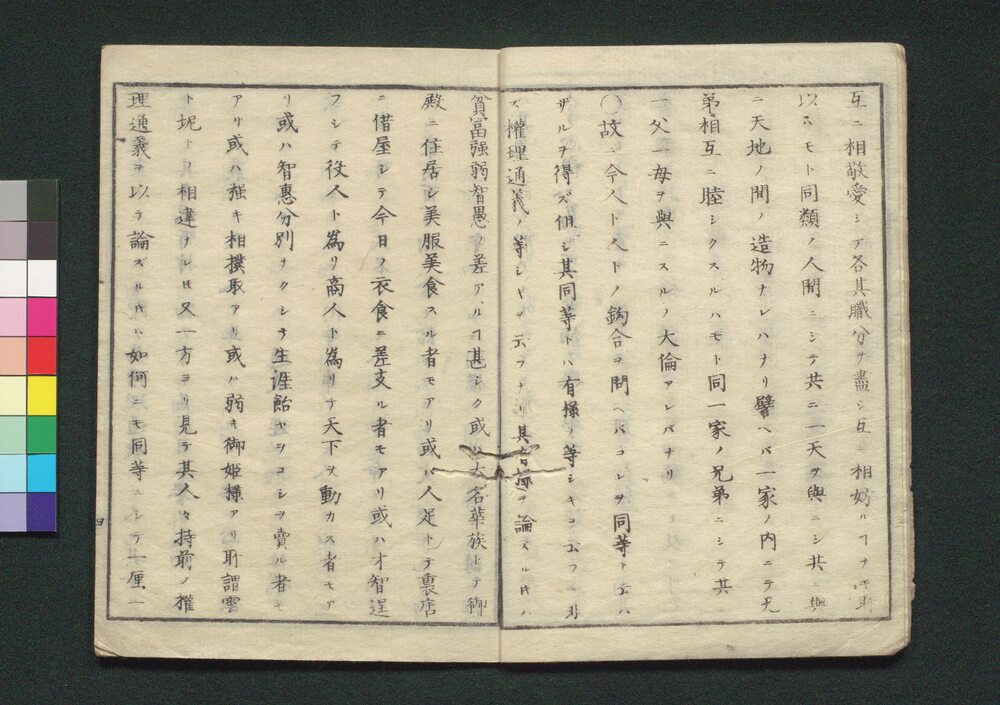 互ニ相敬愛シテ各其職分ヲ盡シ互ニ相妨ルヿナキ所
以ハモト同類ノ人間ニシテ共ニ一天ヲ與ニシ共ニ與
ニ天地ノ間ノ造物ナレハナリ譬ヘバ一家ノ内ニテ兄
弟相互ニ睦シクスルハモト同一家ノ兄弟ニシテ共ニ
一父一母ヲ與ニスルノ大倫アレバナリ
〇故ニ今人ト人トノ鈎合ヲ問ヘバコレヲ同等ト云ハ
ザルヲ得ズ但シ其同等トハ有様ノ等シキヲ云フニ非
ズ權理通義ノ等シキヲ云フナリ其有様ヲ論ズル𪜈ハ
貧富强弱智愚ノ差アルヿ甚シク或ハ大名華族トテ御
殿ニ住居シ美服美食スル者モアリ或ハ人足トテ裏店
ニ借屋シテ今日ノ衣食ニ差支ル者モアリ或ハ才智逞
フシテ役人ト為リ商人ト為リテ天下ヲ動カス者モア
リ或ハ智惠分別ナクシテ生涯飴ヤヲコシヲ賣ル者モ
アリ或ハ强キ相撲取アリ或ハ弱キ御姫様アリ所謂雲
ト坭トノ相違ナレ𪜈又一方ヨリ見テ其人々持前ノ權
理通義ヲ以テ論ズル𪜈ハ如何ニモ同等ニシテ一厘一
四